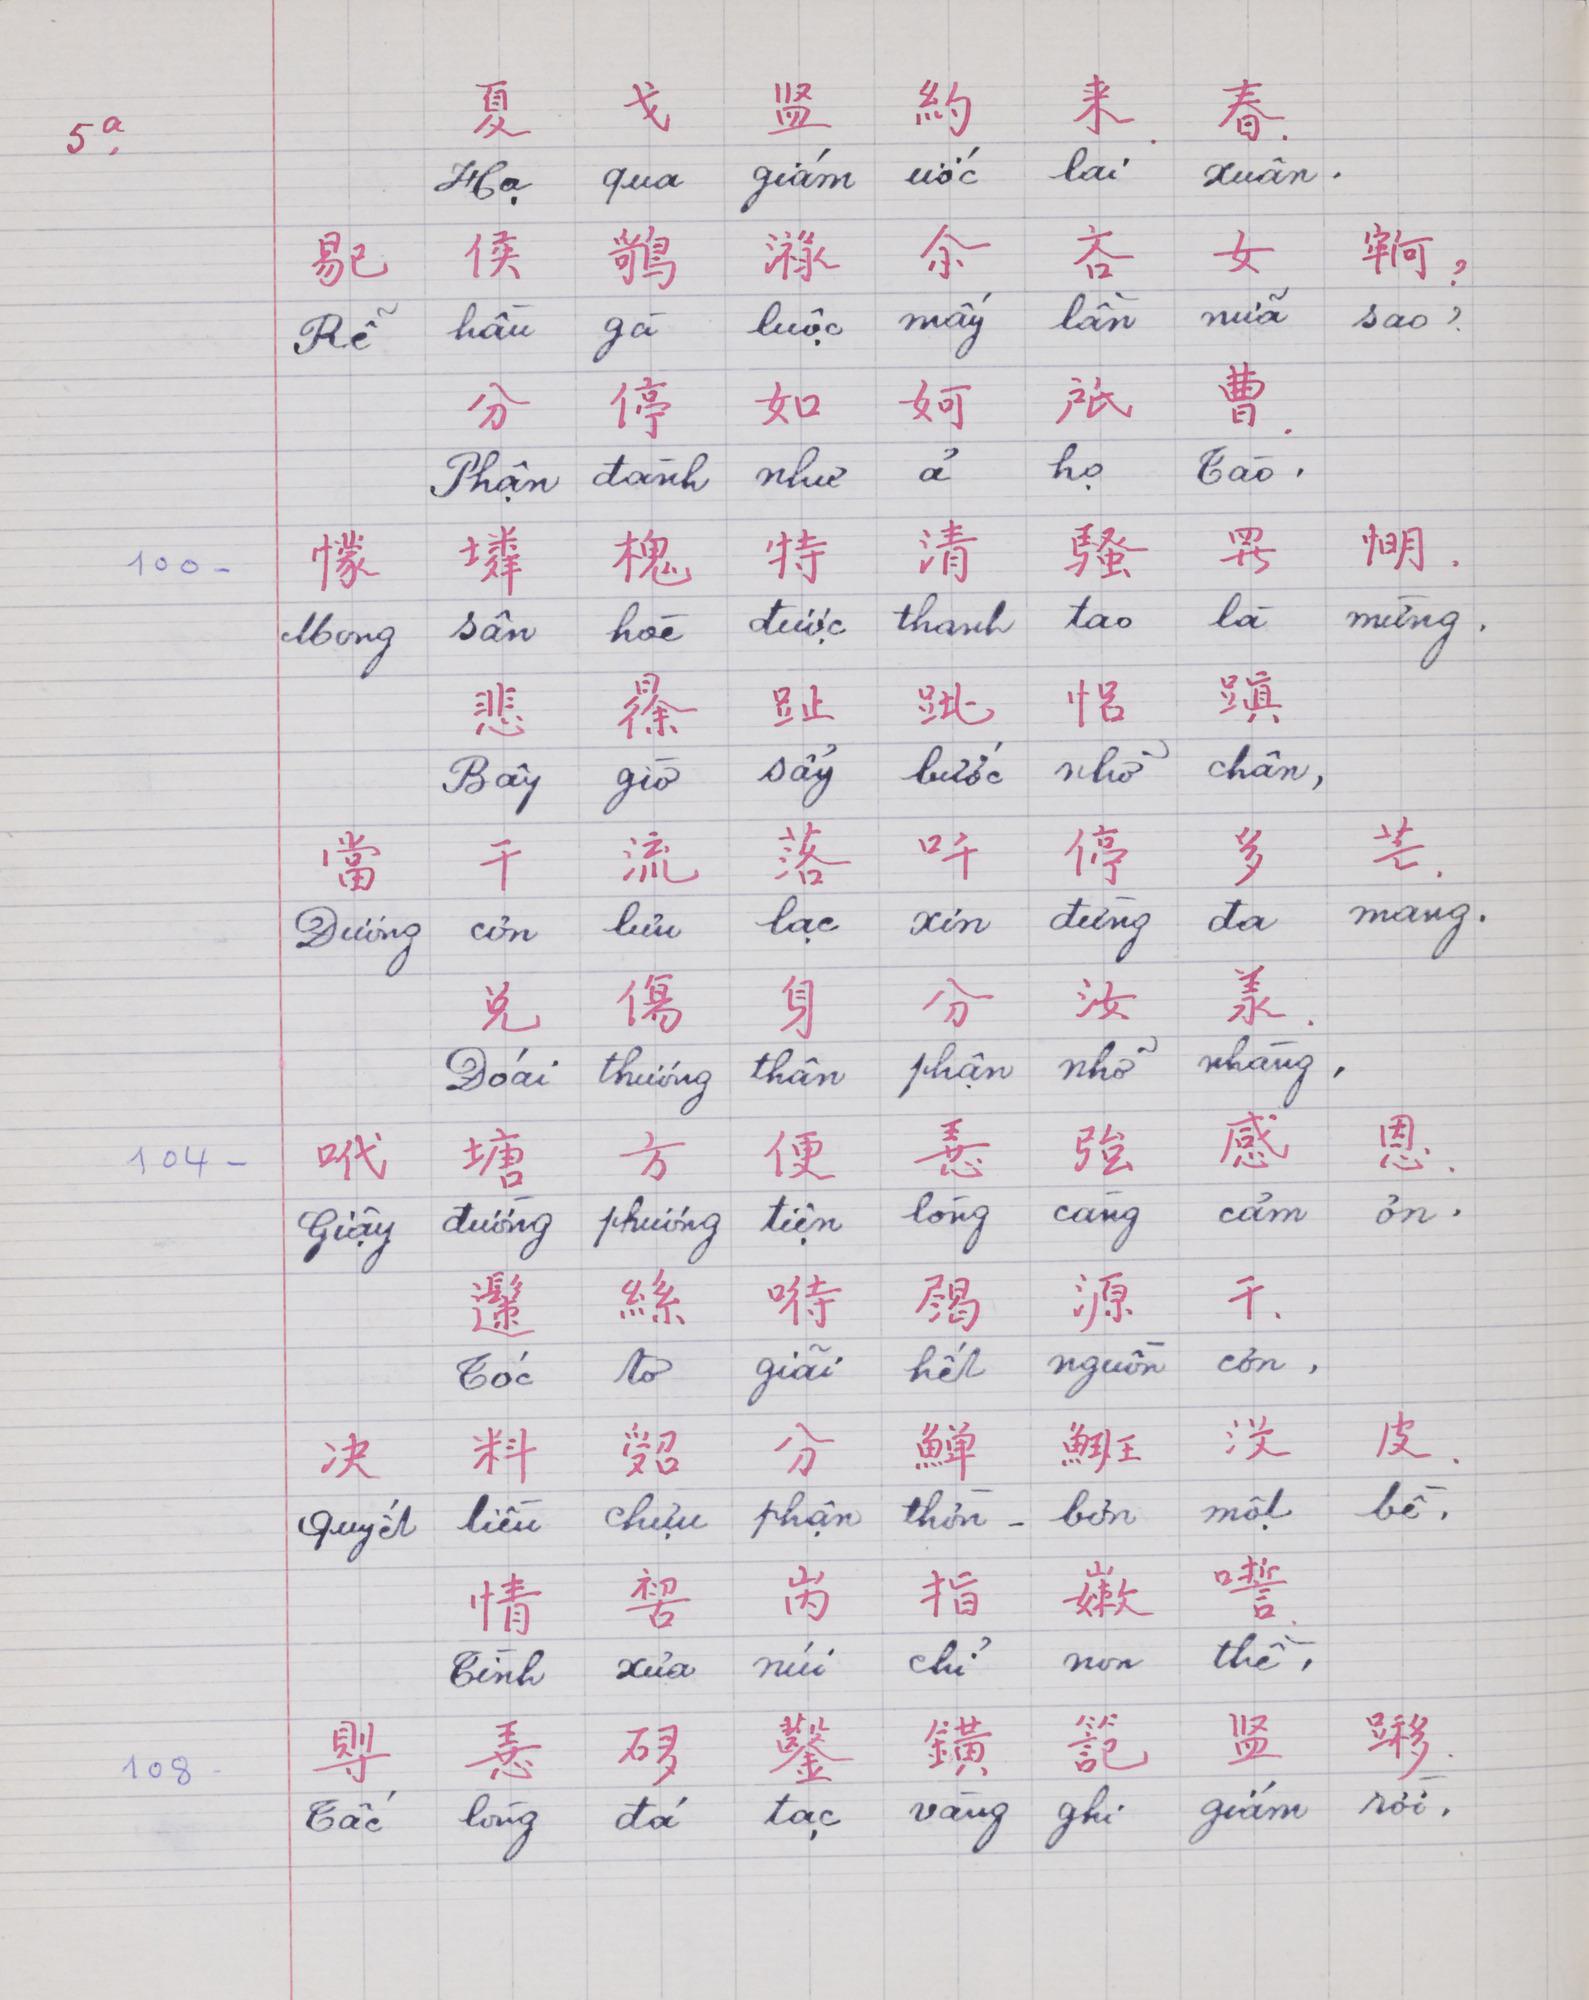 5ª.
夏 戈 约 来 春.
Hạ qua giám ước lai xuân.
侯 渌 余 吝 女 ?
Rễ hầu gà luộc mấy lần nữa sao?
分 停 如 妸 曹.
Phận đành như ả họ Tào.
100- 懞 槐 特 清 騷 𱺵 𢜏.
Mong sân hoè được thanh tao là mừng.
悲 趾 𨀈 蹎
Bây giờ sẩy bước nhỡ chân,
當 干 流 落 吀 停 多 芒.
Đương cơn lưu lạc xin đừng đa mang.
兑 傷 身 分 汝
Đoái thương thân phận nhỡ nhàng,
104- 塘 方 便 強 感 恩.
Giậy đường phương tiện lòng càng cảm ơn.
絲 源 干.
Tóc tơ giãi hết nguồn cơn,
决 料 分 没 皮.
Quyết liều chựu phận thờn - bơn một bề,
情 指 嫩 .
Tình xưa núi chỉ non thề,
108- 鑿 鐄 .
Tấc lòng đá tạc vàng ghi giám rời,